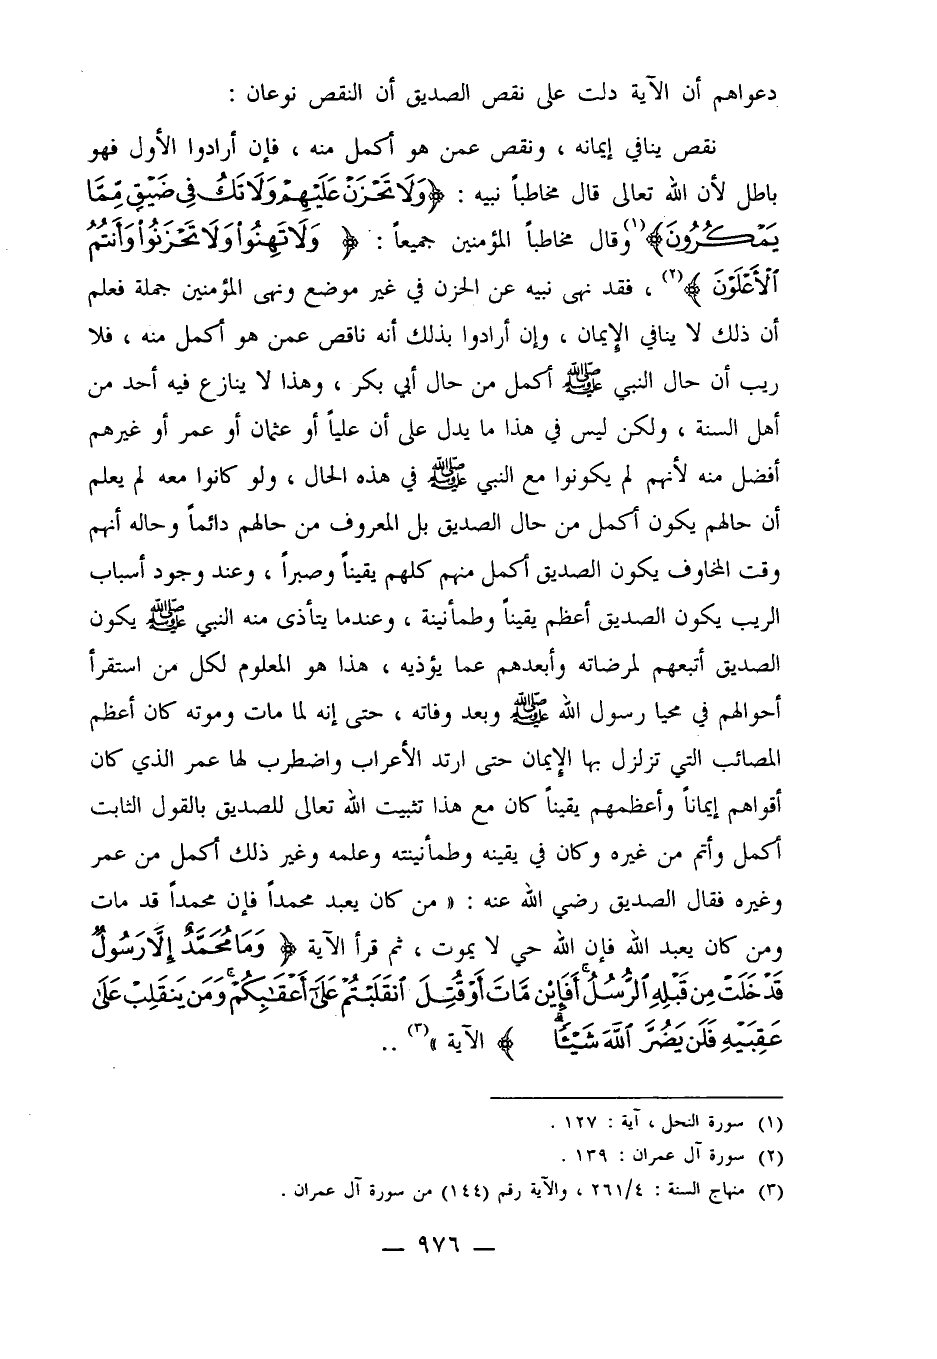 دعواهم أن الآية دلت على نقص الصديق أن النقص نوعان :
نقص ينافي إيمانه ، ونقص عمن هو أكمل منه ، فإن أرادوا الأول فهو
باطل لأن الله تعالى قال مخاطباً نبيه : ﴿وَلَا تَحْزَنْ عَلَيْهِمْ وَلَا تَكُ فِي ضَيْقٍ مِّمَّا
يَمْكُرُونَ﴾(١) وقال مخاطباً المؤمنين جميعاً : ﴿ وَلَا تَهِنُوا وَلَا تَحْزَنُوا وَأَنتُمُ
الْأَعْلَوْنَ ﴾(٢) ، فقد نهى نبيه عن الحزن في غير موضع ونهى المؤمنين جملة فعلم
أن ذلك لا ينافي الإيمان ، وإن أرادوا بذلك أنه ناقص عمن هو أكمل منه ، فلا
ريب أن حال النبي ﷺ أكمل من حال أبي بكر ، وهذا لا ينازع فيه أحد من
أهل السنة ، ولكن ليس في هذا ما يدل على أن علياً أو عثمان أو عمر أو غيرهم
أفضل منه لأنهم لم يكونوا مع النبي ﷺ في هذه الحال ، ولو كانوا معه لم يعلم
أن حالهم يكون أكمل من حال الصديق بل المعروف من حالهم دائماً وحاله أنهم
وقت المخاوف يكون الصديق أكمل منهم كلهم يقيناً وصبراً ، وعند وجود أسباب
الريب يكون الصديق أعظم يقيناً وطمأنينة ، وعندما يتأذى منه النبي ﷺ يكون
الصديق أتبعهم لمرضاته وأبعدهم عما يؤذيه ، هذا هو المعلوم لكل من استقرأ
أحوالهم في محيا رسول الله ﷺ وبعد وفاته ، حتى إنه لما مات وموته كان أعظم
المصائب التي تزلزل بها الإيمان حتى ارتد الأعراب واضطرب لها عمر الذي كان
أقواهم إيماناً وأعظمهم يقيناً كان مع هذا تثبيت الله تعالى للصديق بالقول الثابت
أكمل وأتم من غيره وكان في يقينه وطمأنينته وعلمه وغير ذلك أكمل من عمر
وغيره فقال الصديق رضي الله عنه : « من كان يعبد محمداً فإن محمداً قد مات
ومن كان يعبد الله فإن الله حي لا يموت ، ثم قرأ الآية ﴿ وَمَا مُحَمَّدٌ إِلَّا رَسُولٌ
قَدْ خَلَتْ مِن قَبْلِهِ الرُّسُلُ أَفَإِيْن مَّاتَ أَوْ قُتِلَ انقَلَبْتُمْ عَلَىٰ أَعْقَابِكُمْ وَمَن يَنقَلِبْ عَلَىٰ
عَقِبَيْهِ فَلَن يَضُرَّ اللَّهَ شَيْئًا ﴾ الآية »(٣) ..
(١) سورة النحل ، آية : ١٢٧ .
(٢) سورة آل عمران : ١٣٩ .
(٣) منهاج السنة : ٢٦١/٤ ، والآية رقم (١٤٤) من سورة آل عمران .
— ٩٧٦ —